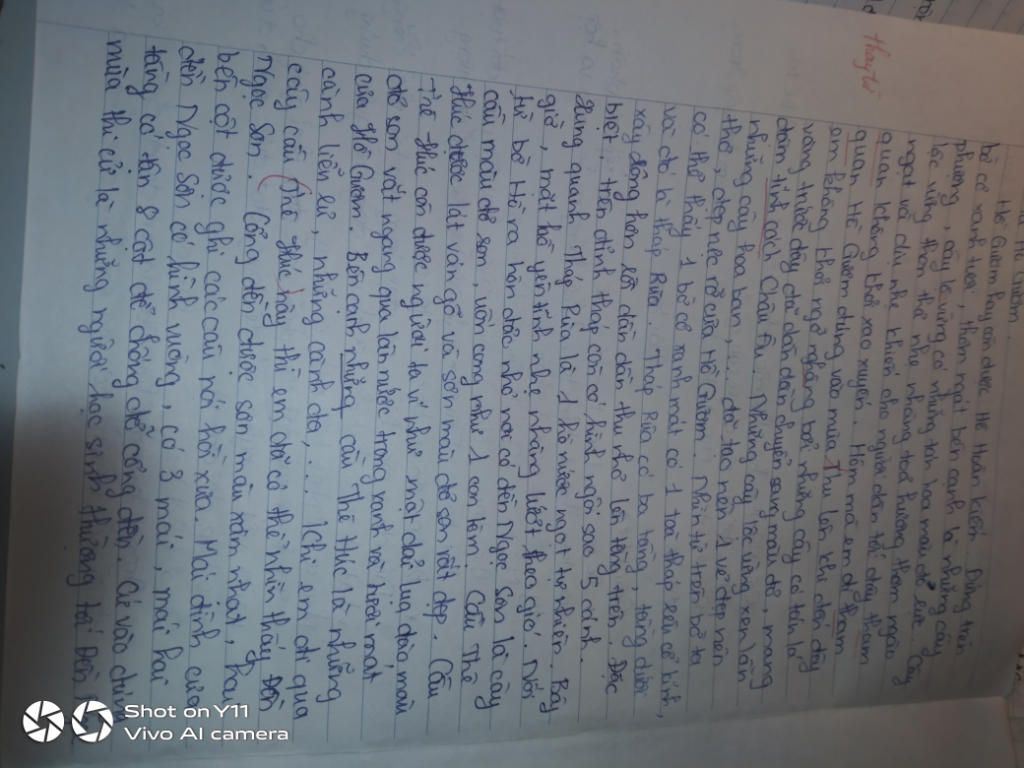 Hồ Gươm.
Hồ Gươm hay còn được Hồ Hoàn Kiếm. Đứng trên
bờ cỏ xanh tươi, thơm mát bên cạnh là những cây
phượng, cây lộc vừng có những tán hoa màu đỏ rực. Cây
lộc vừng thơm thơ nhẹ nhàng toả hương, thơm ngào
ngạt và dịu nhẹ khiến cho người dân tới đây tham
quan không khỏi xao xuyến. Hôm mà em đi tham
quan Hồ Gươm đúng vào mùa Thu lên khi đến đây
em không khỏi ngỡ ngàng bởi những cây có tán lá
vàng trước đây đã dần dần chuyển sang màu đỏ, mang
đậm tính cách Châu Âu. Những cây lộc vừng xen lẫn
những cây hoa ban, ... đã tạo nên 1 vẻ đẹp nên
thơ, đẹp nức nở của Hồ Gươm. Nhìn từ trên bờ ta
có thể thấy 1 bờ cỏ xanh mát có 1 toà tháp sến cổ kính,
và đó là tháp Rùa. Tháp Rùa có ba tầng, tầng dưới
xây rộng hơn rồi dần dần thu nhỏ lên tầng trên. Đặc
biệt, trên đỉnh tháp còn có hình ngôi sao 5 cánh.
Xung quanh Tháp Rùa là 1 hồ nước ngọt tự nhiên. Bây
giờ, mặt hồ yên tĩnh nhẹ nhàng lướt theo gió. Nối
từ bờ Hồ ra hòn đảo nhỏ nơi có đền Ngọc Sơn là cây
cầu màu đỏ son, uốn cong như 1 con tôm. Cầu Thê
Húc được lát ván gỗ và sơn màu đỏ son rất đẹp. Cầu
Thê Húc còn được người ta ví như một dải lụa đào màu
đỏ son vắt ngang qua làn nước trong xanh và hoài mát
của Hồ Gươm. Bên cạnh những cầu Thê Húc là những
cành liễu rủ, những cành đa, ... Khi em đi qua
cây cầu (Thê Húc) này thì em đã có thể nhìn thấy Đền
Ngọc Sơn. Cổng đền được sơn màu xám nhạt, hai
bên cột được ghi các câu nói hồi xưa. Mái đình của
đền Ngọc Sơn có hình vuông, có 3 mái, mái hai
tầng có tên 8 cột để chống đỡ cổng đền. Cứ vào đúng
mùa thi cử là những người học sinh thường tới Đền
thay từ
Shot on Y11
Vivo AI camera